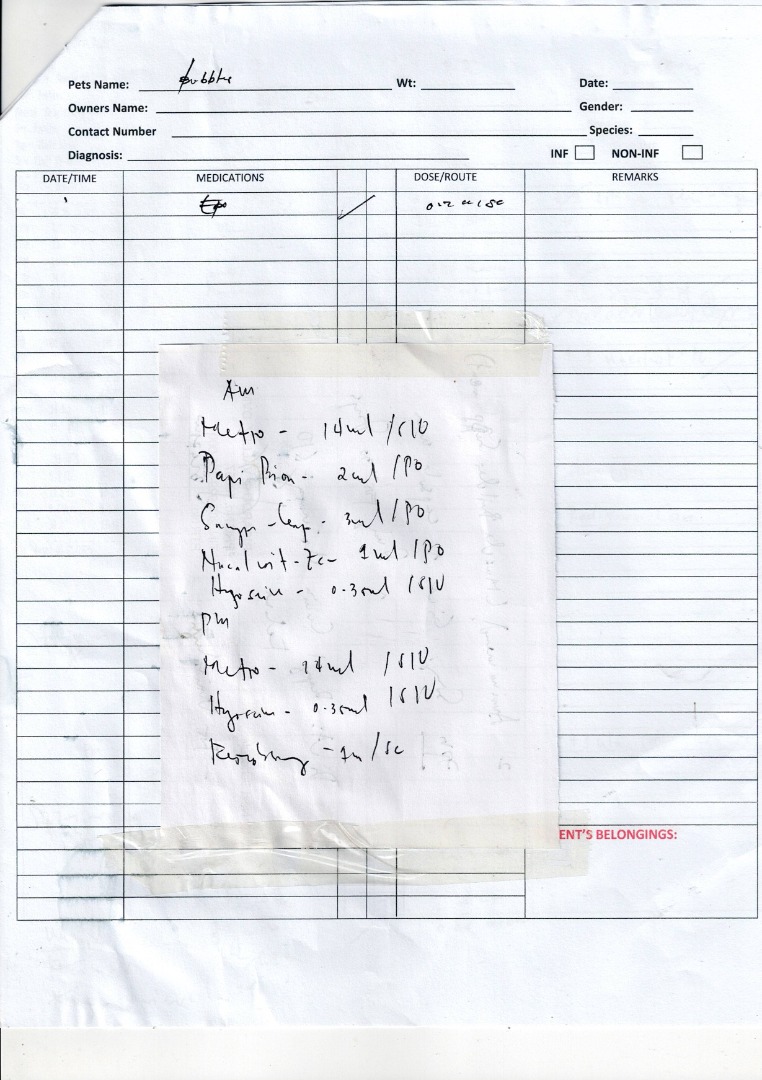 Pets Name: Bubbles Wt: Date:
Owners Name: Gender:
Contact Number Species:
Diagnosis: INF NON-INF
DATE/TIME MEDICATIONS DOSE/ROUTE REMARKS
Epo 0.2 /SC
Am
Metro - 14ml /SIV
Papi - 2ml /PO
3ml /PO
Nucal vit - Zc - 1ml /PO
Hyoscine - 0.35ml /SIV
PM
Metro - 14ml /SIV
Hyoscine - 0.35ml /SIV
/SC
ENT'S BELONGINGS: